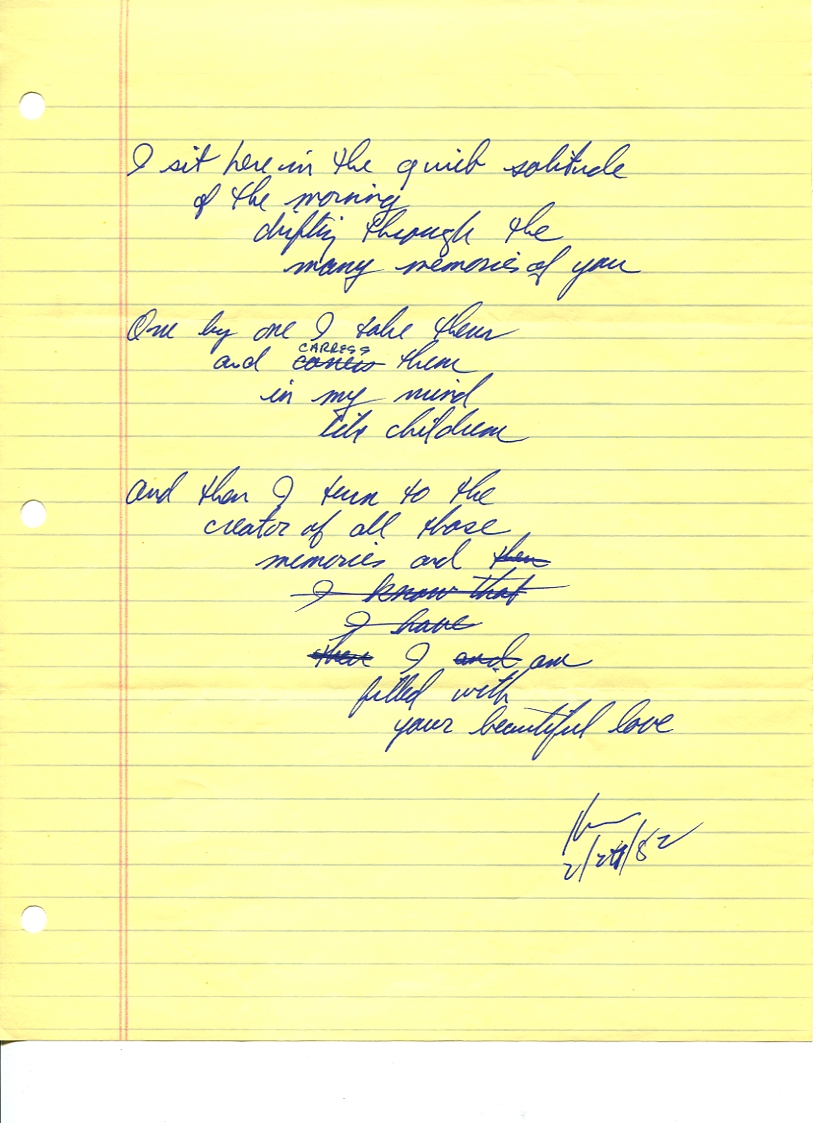 I sit here in the quiet solitude
of the morning
drifting through the
many memories of you
One by one I take them
CARRESS
and caress them
in my mind
like children
And then I turn to the
creator of all those
memories and then
I know that
I have
then I and am
filled with
your beautiful love